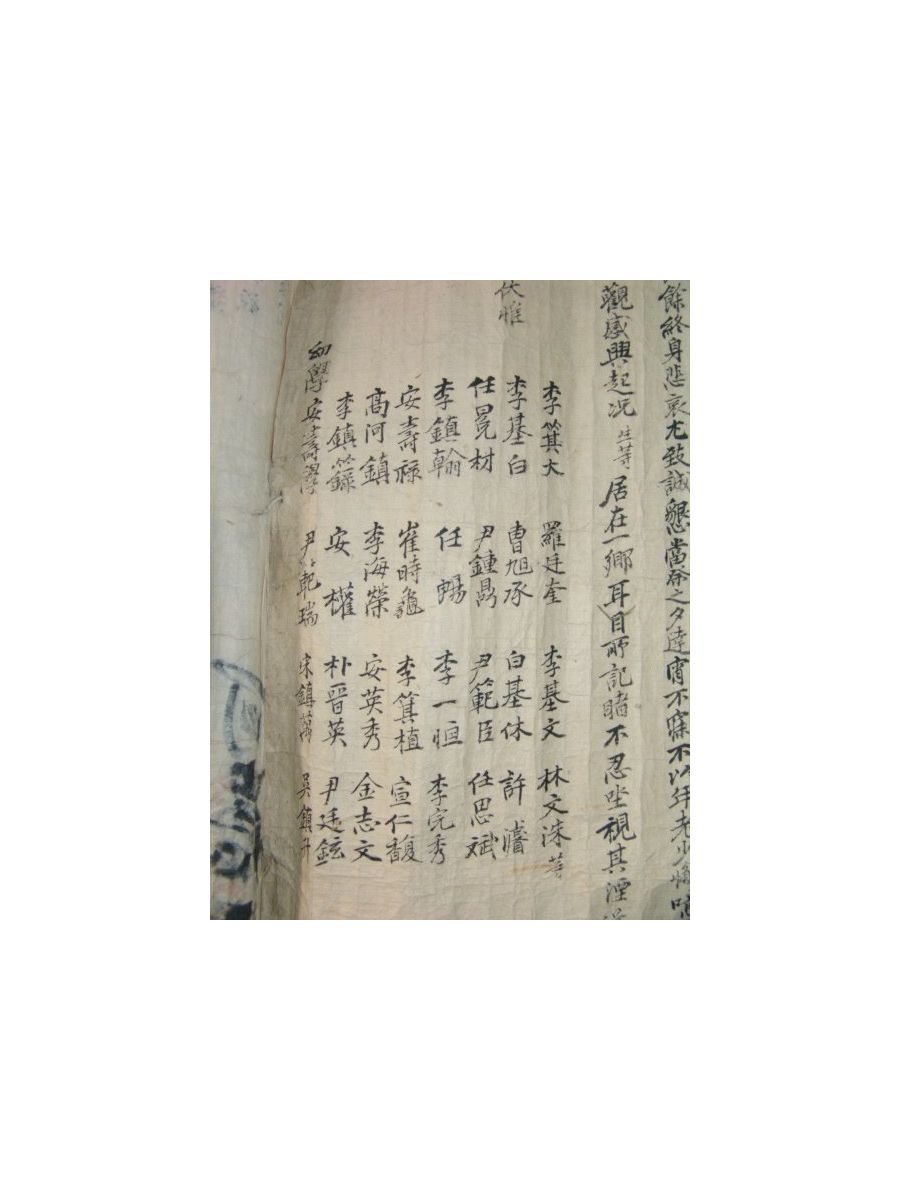 餘終身悲哀尤致誠懇當祭之夕達宵不寐不以年老少懈
觀感興起况 生等 居在一鄉耳目所記睹不忍坐視其湮
伏惟
李箕大 羅廷奎 李基文 林文洙 等
李基白 曺旭承 白基休 許濬
任冕材 尹鍾鼎 尹範臣 任思斌
李鎭翰 任暢 李一恒 李完秀
安壽祿 崔時龜 李箕植 宣仁馥
高河鎭 李海榮 安英秀 金志文
李鎭籙 安權 朴晋英 尹廷鉉
幼學 安壽 尹範瑞 宋鎭萬 吳鎭升